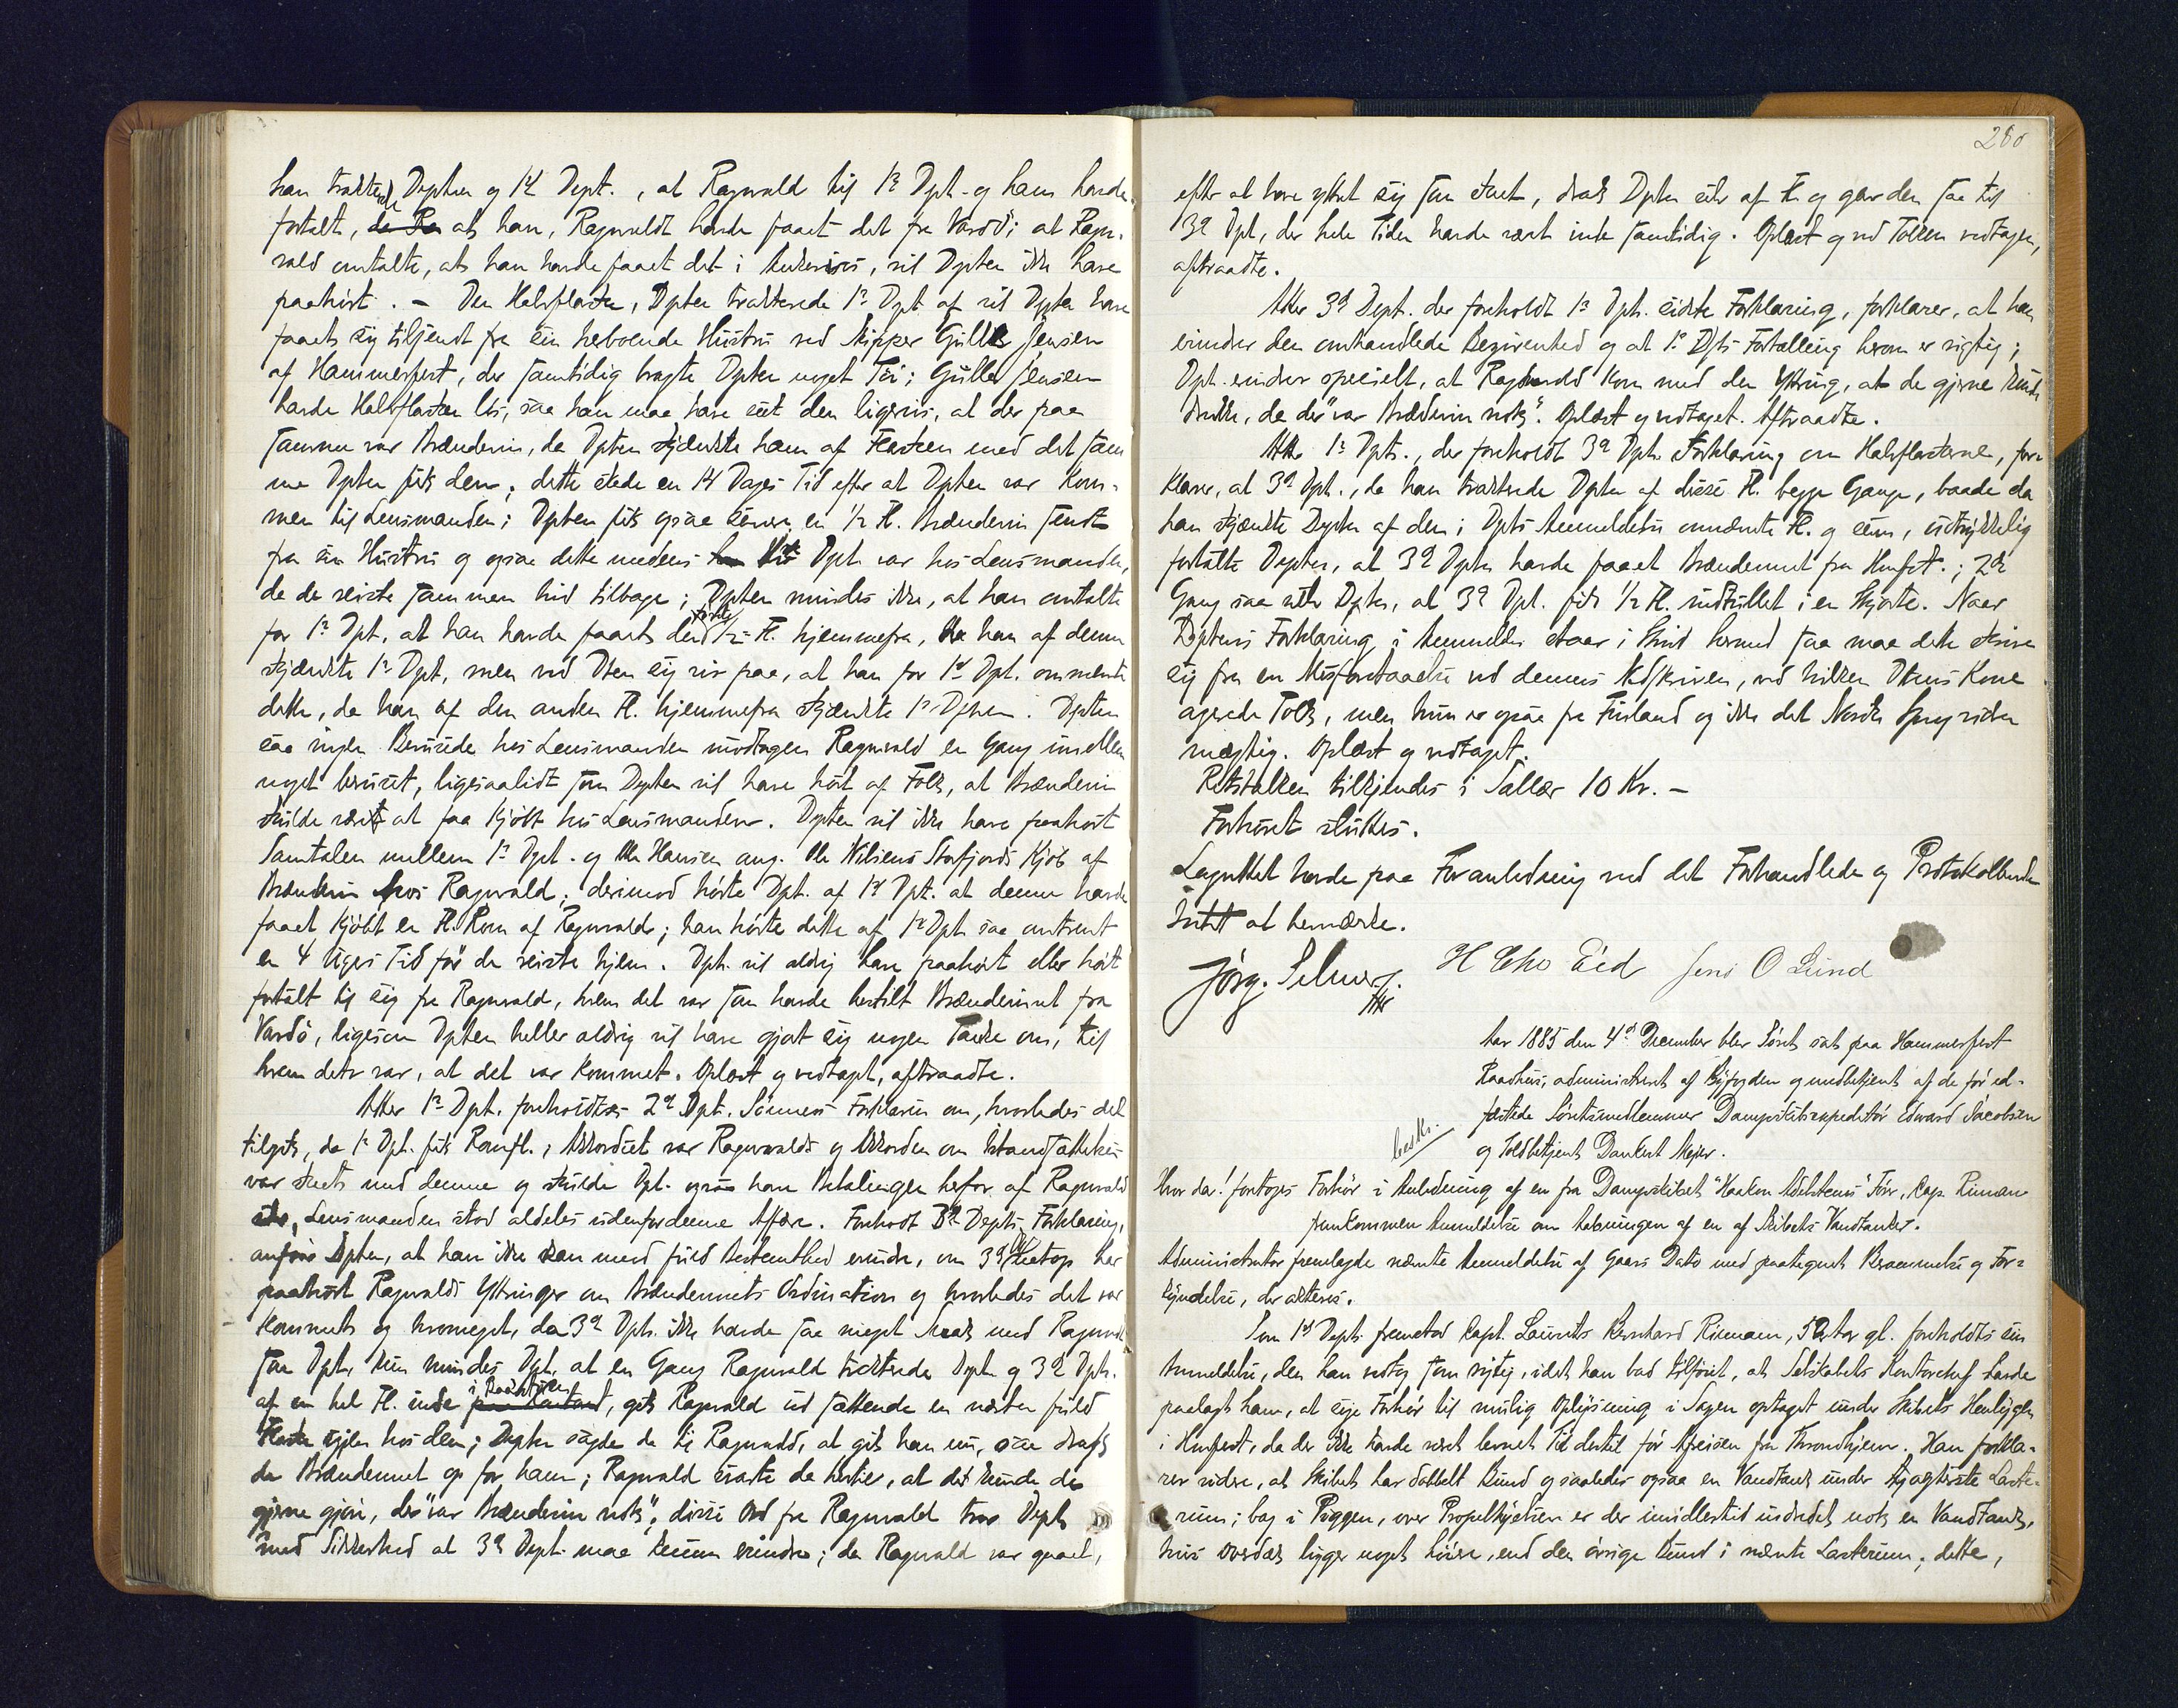 han trakterede Dopten og 1st Dept., at Ragnvald til 1ste Dpt. og ham havde
fortalt, de Ra at han, Ragnvald havde faaet det fra Vardö; at Ragn-
vald omtalte, at han havde faaet det i, vil Dopten ikke have
paahørt. – Den Halvflaske, Dopten trakterede 1ste Dpt. af vil Dopten have
faaet sig tilsendt fra sin herboende Hustru ved Skipper Gulle Jensen
af Hammerfest, der samtidig bragte Dopten noget Töi; Gulle Jensen
havde Halvflasken løs, saa han maa have seet den ligesom, at der paa
samme var Brændevin, da Dopten skjænkte ham af Flasken med det sam
me Dopten fik den; dette skede en 14 Dages Tid efter at Dopten var kom-
men til Lensmanden; Dopten fik ogsaa senere en ½ Fl. Brændevin sendt
fra sin Hustru og ogsaa dette medens Dpt. var hos Lensmanden,
da de reiste sammen hid tilbage; Dopten mindes ikke, at han omtalte
for 1ste Dpt., at han havde faaet den første ½ Fl. hjemmefra, da han af denne
skjænkte 1ste Dpt., men ved Dten sig vis paa, at han for 1ste Dpt. omnævnte
dette, da han af den anden Fl. hjemmefra skjænkte 1ste Dpten. Dopten
saa ingen Berusede hos Lensmanden undtagen Ragnvald en Gang imellem
noget beruset, ligesaalidt som Dopten vil have hørt af Folk, at Brændevin
skulde været at faa kjöbt hos Lensmanden. Dopten vil ikke have paahørt
Samtalen mellem 1ste Dpt. og Ole Hansen ang. Ole Nilsens Storfjords Kjöb af
Brændevin hos Ragnvald; derimod hörte Dpt. af 1ste Dpt. at denne havde
faaet kjöbt en Fl. Rom af Ragnvald; han hörte dette af 1ste Dpt. saa omtrent
en 4 Ugers Tid för de reiste hjem. Dpt. vil aldrig have paahört eller hört
fortalt til sig fra Ragnvald, hvem det var som havde bestilt Brændevinet fra
Vardö, ligesom Dopten heller aldrig vil have gjort sig nogen Tanke om, til
hvem det var, at det var kommet. Oplæst og vedtaget, aftraadte.
Atter 1ste Dpt. foreholdtes 2den Dpt. Sönnens Forklaring om, hvorledes det
tilgik, da 1ste Dpt. fik Romfl.; var Ragnvalds og Akkorden om Istandsættelsen
var sluttet med denne og skulde Dpt. ogsaa have Betalingen herfor af Ragnvald
selv, Lensmanden stod aldeles udenfor denne Affære. Foreholdt 3die Depts. Forklaring,
anfører Dopten, at han ikke kan med fuld Bestemthed erindre, om 3die Dpt. netop har
paahört Ragnvalds Yttringer om Brændevinets Destination og hvorledes det var
kommet og hvormeget, da 3die Dpt. ikke havde saa meget Snak med Ragnvald
som Dpt., kun mindes Dpt., at en Gang Ragnvald trakterede Dopt. og 3die Dpt.
af en hel Fl. inde i Kaarstuen, gik Ragnvald ud sættende en næsten fuld
Flaske igjen hos dem; Dopten sagde da til Ragnvald, at gik han nu, saa drak
de Brændevinet op for ham; Ragnvald svarte da hertil, at det kunde de
gjerne gjøre, der "var Brændevin nok"; disse Ord fra Ragnvald tror Dept.
med Sikkerhed at 3die Dept. maa kunne erindre; da Ragnvald var gaaet,
280
efter at have yttret sig som sluttet, drak Dopten selv af Fl. og gav den saa til
3die Dpt., der hele Tiden havde været inde samtidig. Oplæst og ved Tolken vedtaget,
aftraadte.
Atter 3die Dept. der foreholdt 1ste Dpts. sidste Forklaring, forklarer, at han
erindrer den omhandlede Begivenhed og at 1ste Dpts Fortælling herom er rigtig;
Dpt. erindrer specielt, at Ragnvald kom med den Yttring, at de gjerne kunde
drikke, da der "var Brædevin nok". Oplæst og vedtaget. Aftraadte.
Atter 1ste Dpt., der foreholdt 3die Dpts. Forklaring om Halvflaskerne, for-
klarer, at 3die Dpt., da han trakterede Dopten af disse Fl. begge Gange, baade da
han skjænkte Dopten af den i Dpts Anmeldelse omnævnte Fl. og siden, udtrykkelig
fortalte Dopten, at 3die Dopten havde faaet Brændevinet fra Hmfst.; 2den
Gang saa selv Dopten, at 3die Dpt. fik ½ Fl. indrullet i en Skjorte. Naar
Doptens Forklaring i Anmeldelsen staar i Strid hermed saa maa dette skrive
sig fra en Misforstaaelse ved dennes Nedskriven, ved hvilken Dtens Kone
agerede Tolk, men hun er ogsaa fra Finland og ikke det Norske Sprog videre
mægtig. Oplæst og vedtaget.
Retstolken tilkjendes i Salær 10 Kr. –
Forhöret sluttes.
Lagrettet havde paa Foranledning ved det Forhandlede og Protokollerede
Intet at bemærke.
Jörg. Selmer f.
H Eid Jens O Lund
Aar 1885 den 4de December blev Söret sat paa Hammerfest
Raadhus, administreret af Byfogden og medbetjent af de för ed-
fæstede Söretsmedlemmer Dampskibsexpeditör Edward Jacobsen
og Toldbetjent Dankert Mejer.
besk.
Hvor da! foretoges Forhör i Anledning af en fra Dampskibet "Haakon Adelstens" Förer, Cap. Riemann
fremkommen Anmeldelse om Aabningen af en af Skibets Vandtanker.
Administrator fremlagde nævnte Anmeldelse af Gaars Dato med paategnet Berammelse og For-
kyndelse, der akteres.
Som 1ste Dept. fremstod Capt. Laurits Bernhard Riemann, 52 Aar gl. foreholdtes sin
Anmeldelse, den han vedtog som rigtig, idet han bad tilföiet, at Selskabets Kontorchef havde
paalagt ham, at söge Forhör til mulig Oplysning i Sagen optaget under Skibets Henliggen
i Hmfest, da der ikke havde været levnet Tid dertil för Afreisen fra Throndhjem. Han forkla-
rer videre, at Skibet har dobbelt Bund og saaledes ogsaa en Vandtank under agterste Laste-
rum; bag i Piggen, over Propelhylsen er der imidlertid indredet nok en Vandtank,
hvis Overdæk ligger noget höiere, end den övrige Bund i nævnte Lasterum; dette,